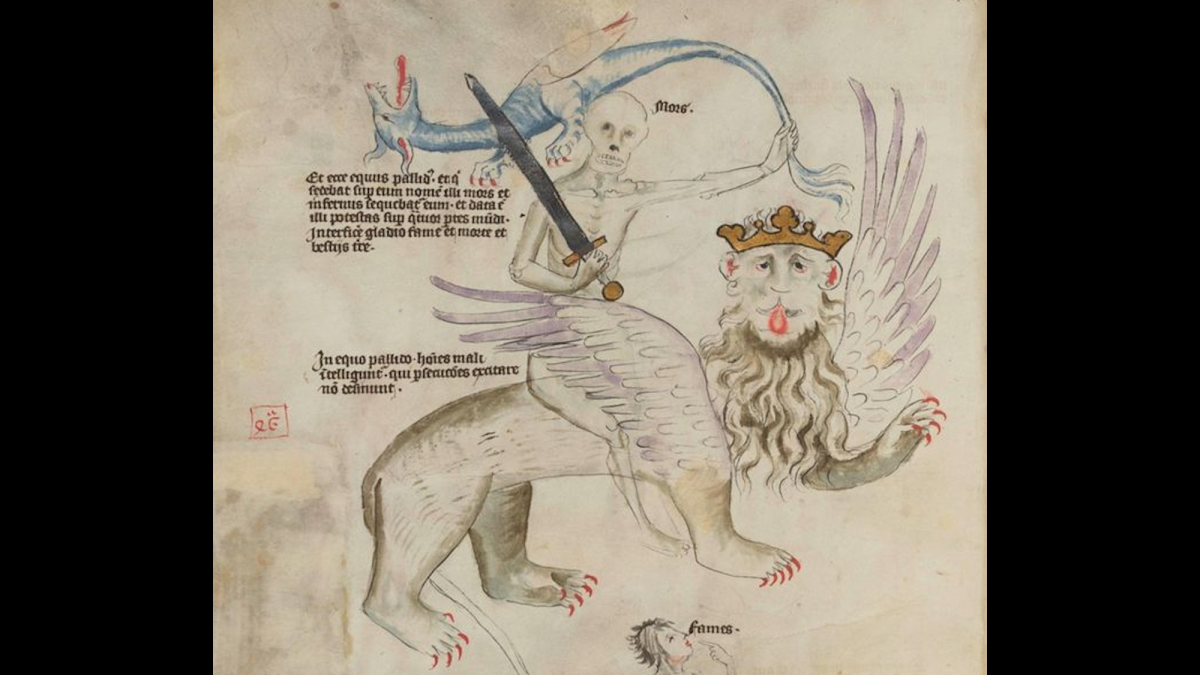 Mors.
Et ecce equus pallidꝰ· et q̇
sedebat sup eum nomē illi mors et
infernus sequebat̄ eum· et data ē
illi potestas sup q̇tuor ptes mūdi·
Interficē gladio fame et morte et
bestijs t̄re·
In equo pallido· hoīes mali
ītelligunt̄· qui ꝑsecucōes excitare
nō desinunt·
Fames·